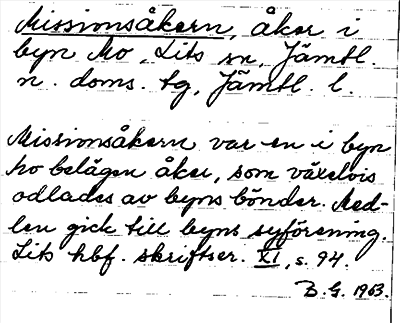 Missionsåkern, åker i
byn Mo, Lits sn, Jämtl.
n. doms. tg, Jämtl. l.
Missionsåkern var en i byn
Mo belägen åker, som växelvis
odlades av byns bönder. Med-
len gick till byns syförening.
Lits hbf. skriftser. XI, s. 94.
B. G. 1963.